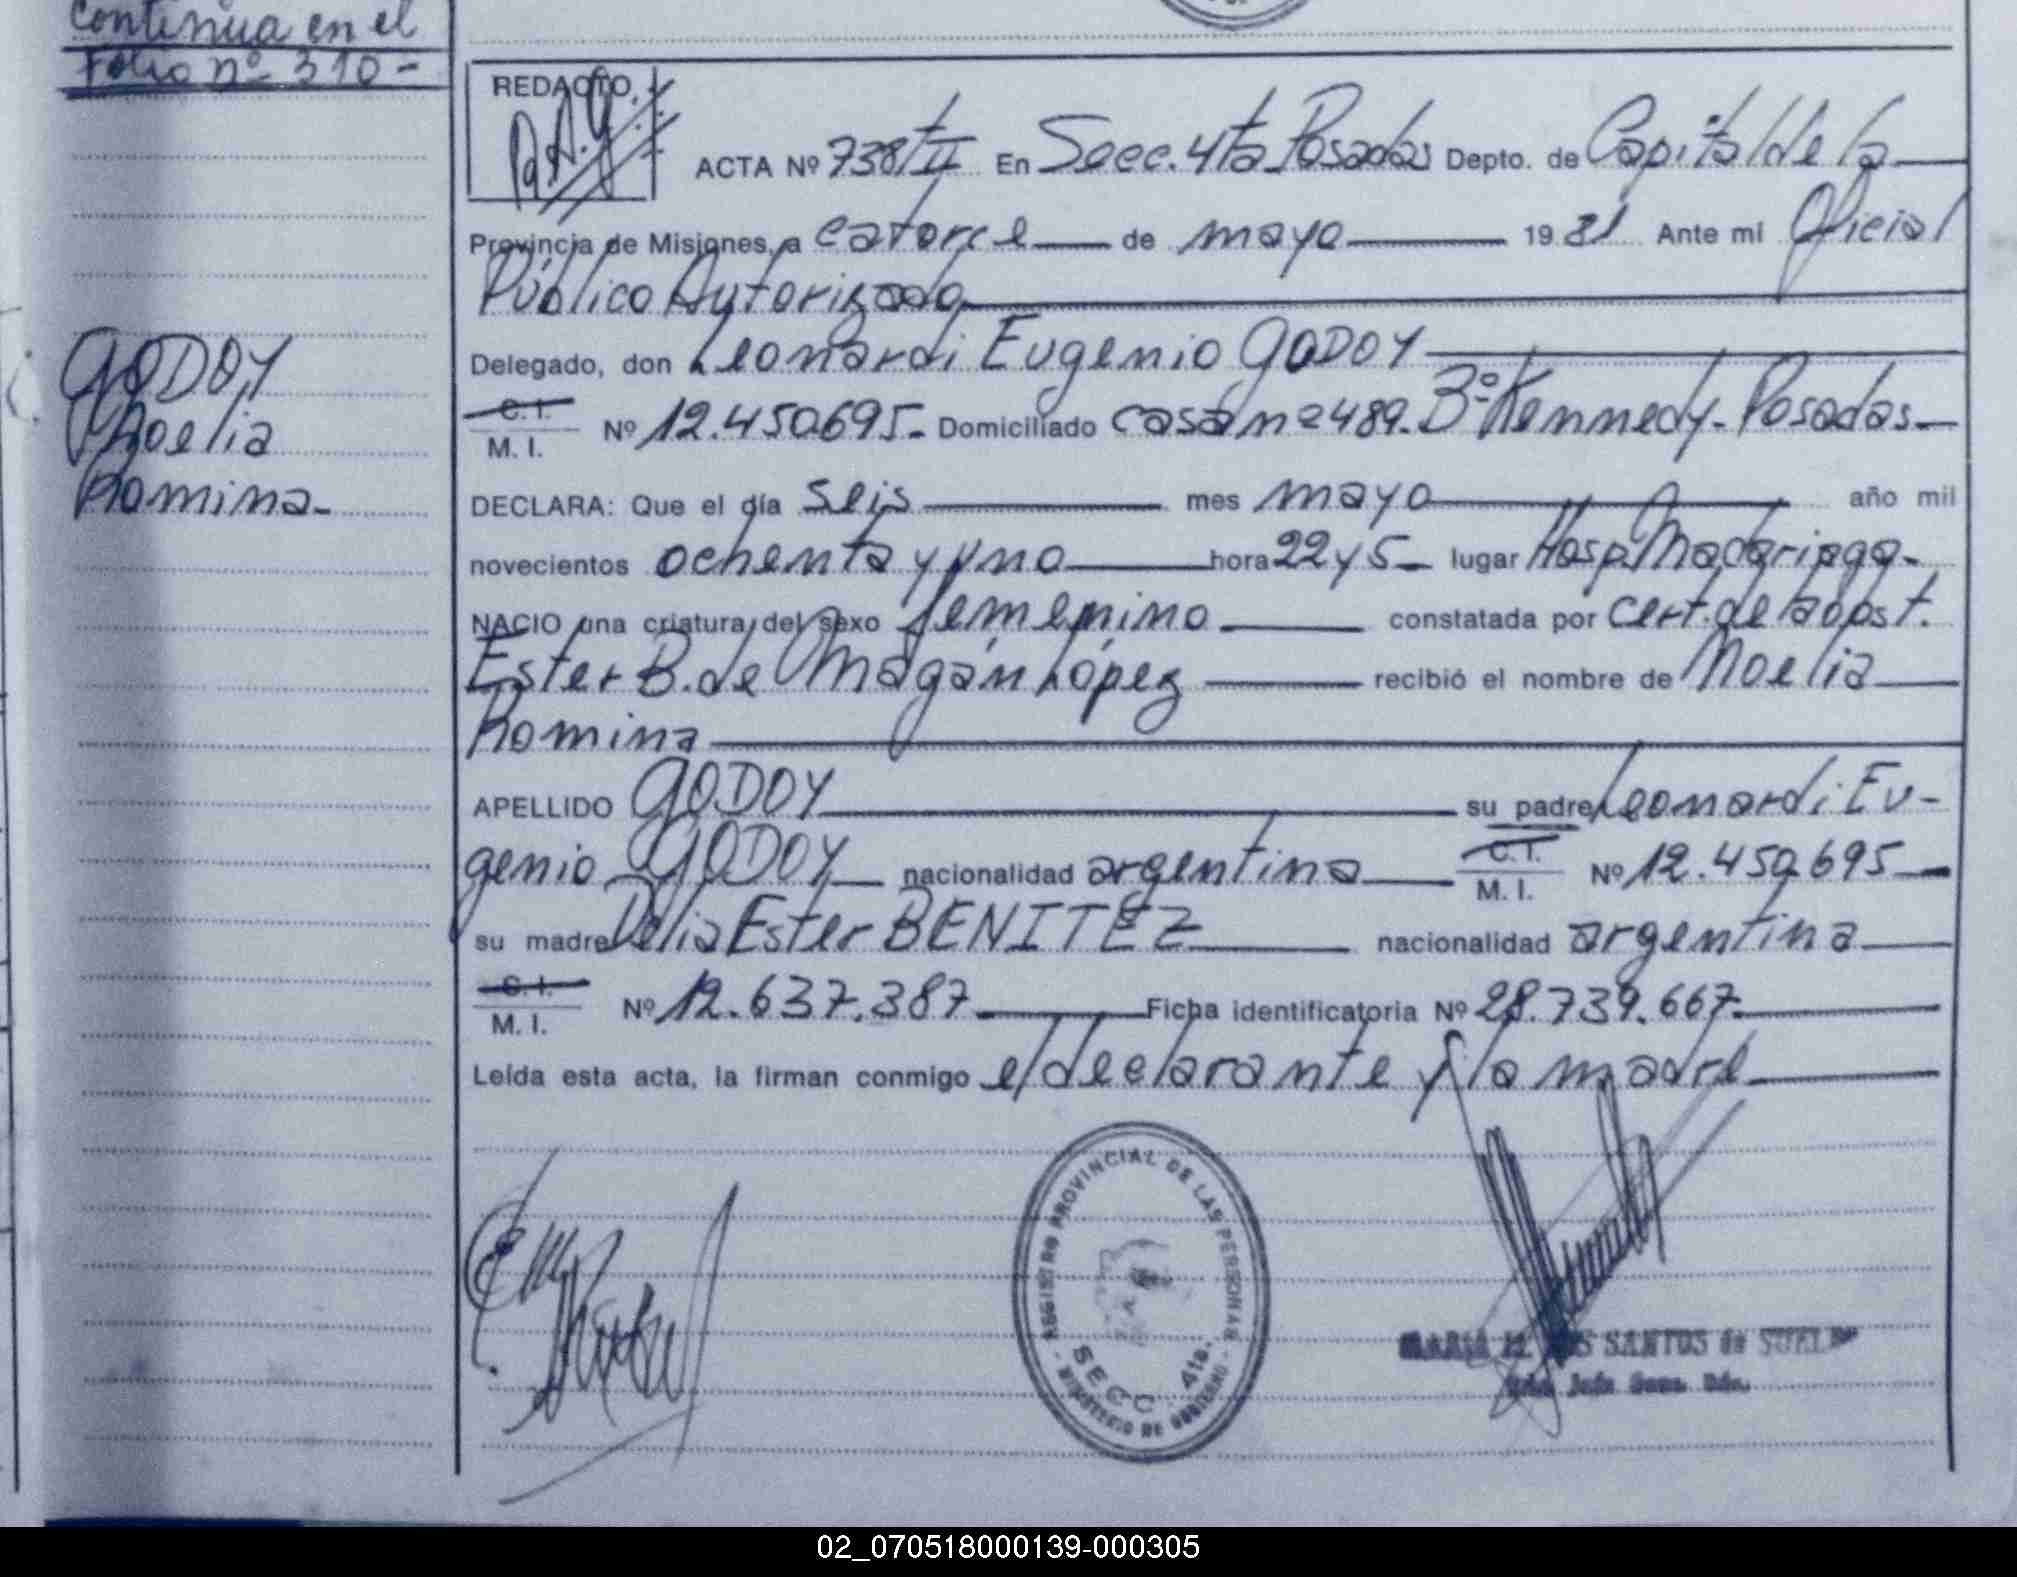 Continua en el
Folio nº 310-
REDACTO
ACTA Nº 738 tII En Secc. 4ta Posadas Depto. de Capital de la
Provincia de Misiones, a catorce de mayo 1981 Ante mi Oficial
Público Autorizado
GODOY
Noelia
Romina-
Delegado, don Leonardi Eugenio GODOY
C.I.
M. I. Nº 12.450.695- Domiciliado casa nº 489-Bº Kennedy-Posadas-
DECLARA: Que el día seis mes mayo año mil
novecientos ochenta y uno hora 22 y 5- lugar Hosp. Madariaga-
NACIO una criatura del sexo femenino constatada por cert. de la obst.
Ester B. de Magán López recibió el nombre de Noelia
Romina
APELLIDO GODOY su padre Leonardi Eu-
genio GODOY nacionalidad argentina C.I. M. I. Nº 12.450.695-
su madre Delia Ester BENITEZ nacionalidad argentina
C. I.
M. I. Nº 12.637.387 Ficha identificatoria Nº 28.739.667-
Leída esta acta, la firman conmigo el declarante y la madre
REGISTRO PROVINCIAL DE LAS PERSONAS
SECC. 4ta.
MINISTERIO DE GOBIERNO
SANTOS de
02_070518000139-000305